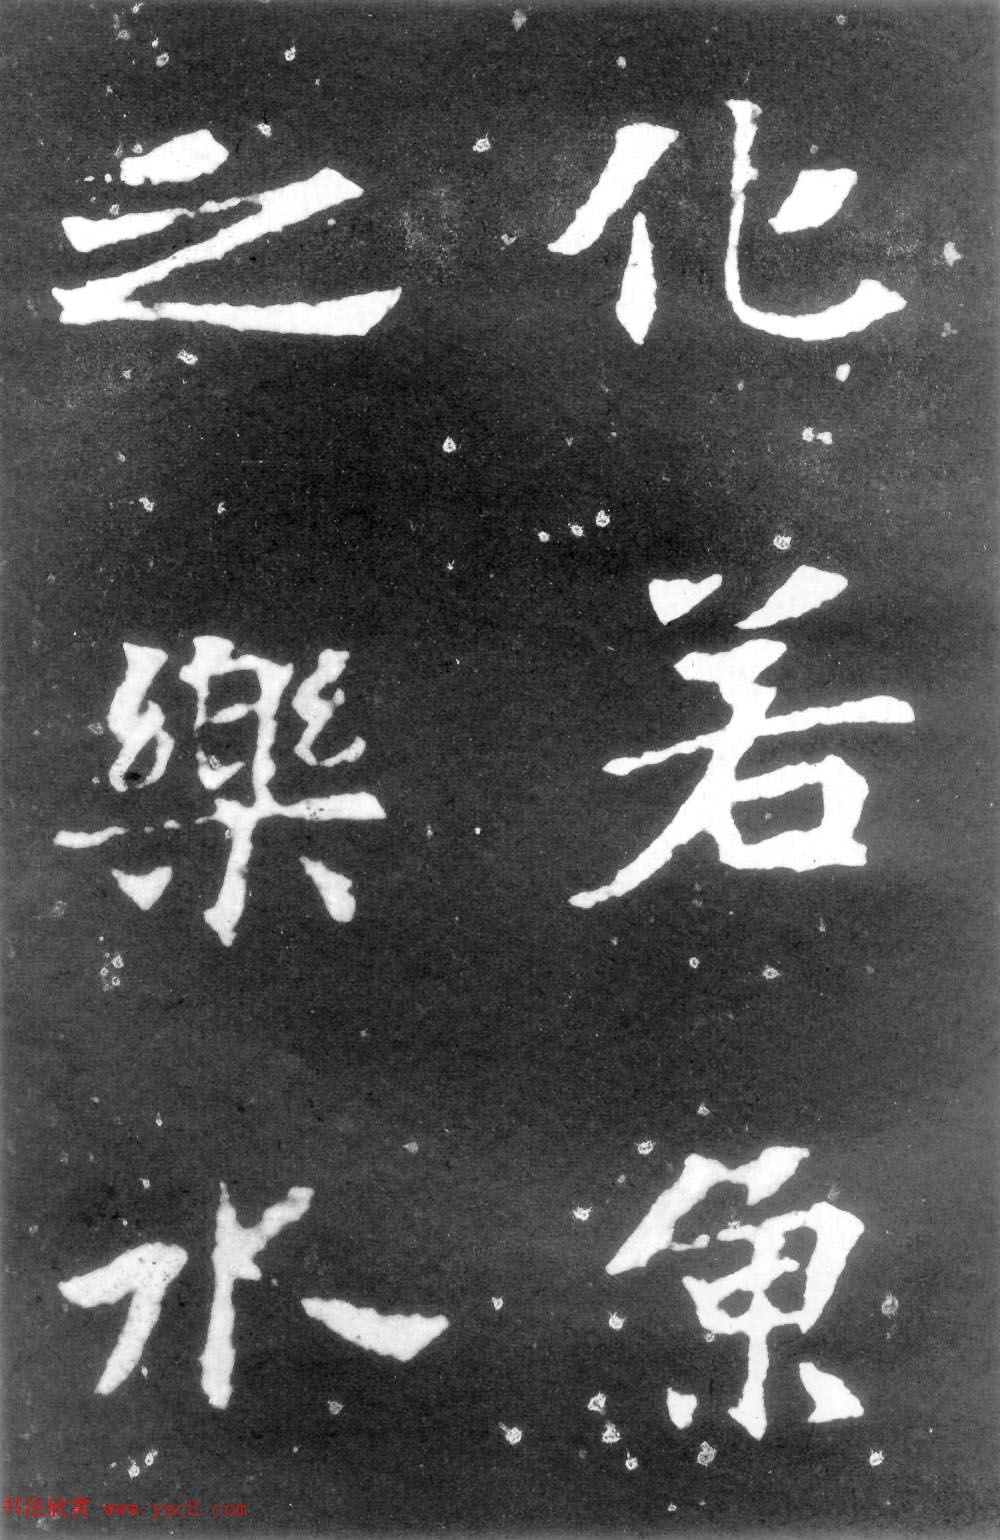 化若魚
之樂水
书法欣赏 www.yac8.com